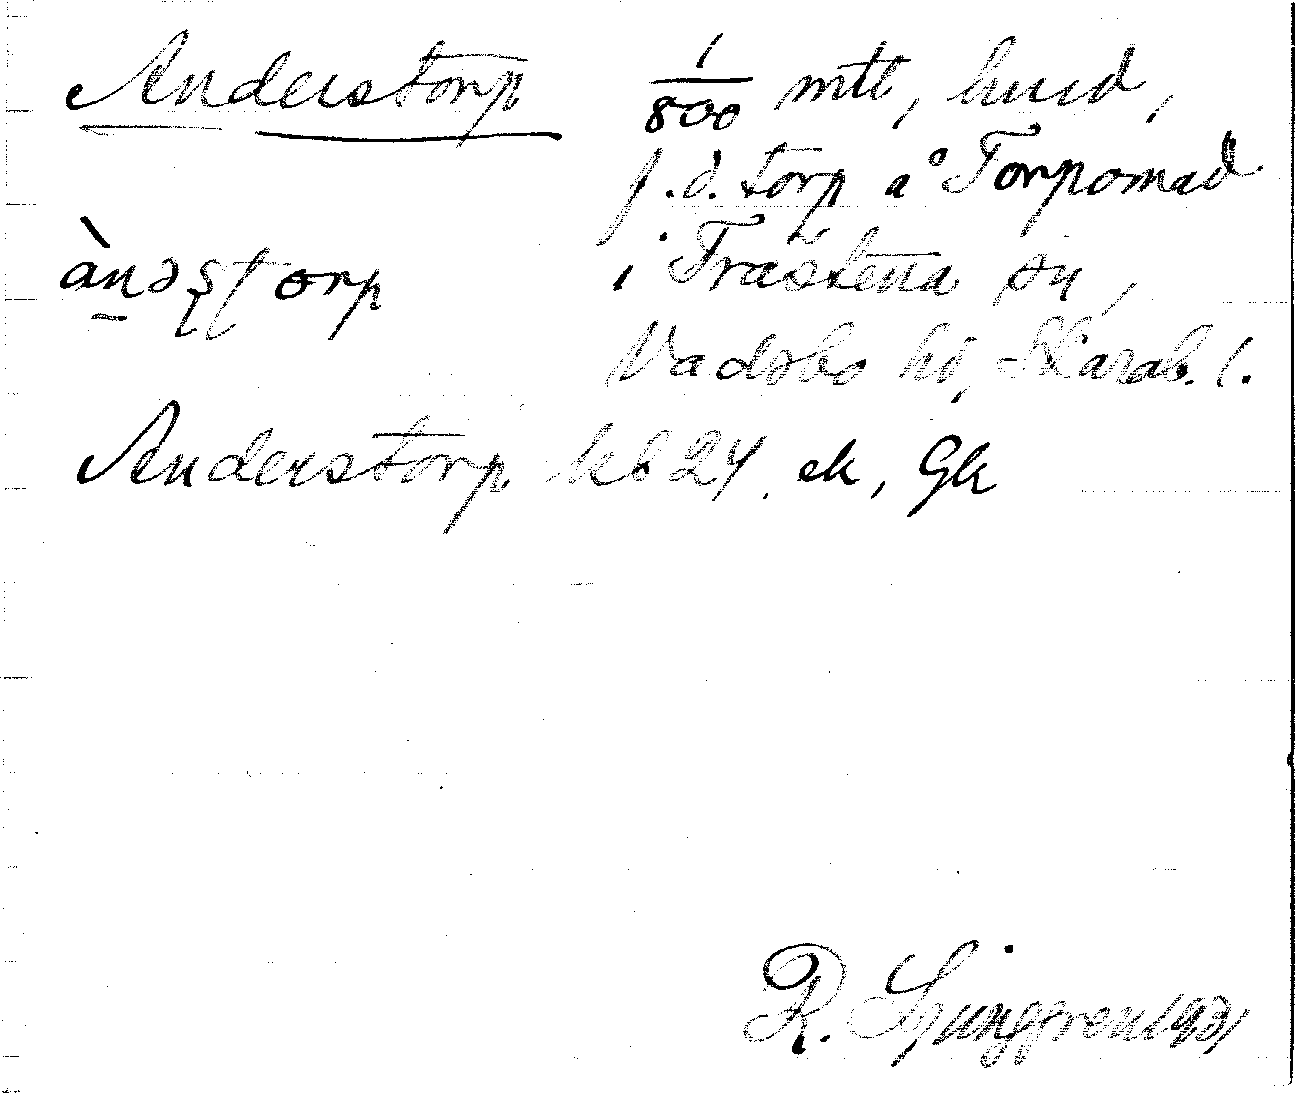 Anderstorp 1/800 mtl, hmd,
f.d. torp å Torpomad
i Trästena sn,
Vadsbo hd, Skarab. l.
àndʂʈorp
Anderstorp kb 24, ek, Gk
R. Ljunggren 1931